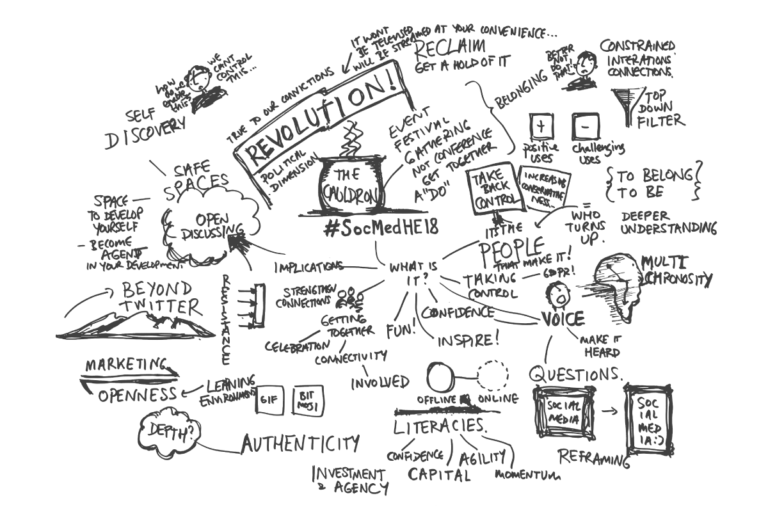 IT WONT
BE TELEVISED
WILL BE STREAMED AT YOUR CONVENIENCE...
RECLAIM
GET A HOLD OF IT
TRUE TO OUR CONVICTIONS
REVOLUTION!
POLITICAL
DIMENSION
THE
CAULDRON
#SocMedHE18
EVENT
FESTIVAL
GATHERING
NOT CONFERENCE
GET TOGETHER
A "DO"
BELONGING
BETTER
NOT DO
THAT!
CONSTRAINED
INTERATIONS
CONNECTIONS.
TOP
DOWN
FILTER
+
positive
uses
-
challenging
uses
TAKE
BACK
CONTROL
INCREASING
TO BELONG
TO BE
= WHO
TURNS
UP.
DEEPER
UNDERSTANDING
WE
CAN'T
CONTROL
THIS...
HOW
DO WE
THIS?
SELF
DISCOVERY
SAFE
SPACES
OPEN
DISCUSSING
SPACE
TO DEVELOP
YOURSELF
- BECOME
AGENTS
IN YOUR DEVELOPMENT
IMPLICATIONS
WHAT IS
IT?
ITS THE
PEOPLE
THAT MAKE IT!
TAKING
CONTROL
GDPR!
MULTI
CHRONOSITY
VOICE
MAKE IT
HEARD
BEYOND
TWITTER
STRENGTHEN
CONNECTIONS
GETTING
TOGETHER
CELEBRATION
CONNECTIVITY
INVOLVED
FUN!
CONFIDENCE
INSPIRE!
MARKETING
OPENNESS
LEANING
ENVIRONMENT
GIF
BIT
MOJI
DEPTH?
AUTHENTICITY
OFFLINE
ONLINE
LITERACIES.
CONFIDENCE
AGILITY
INVESTMENT
& AGENCY
CAPITAL
MOMENTUM
QUESTIONS.
SOCIAL
MEDIA
SOC
IAL
MED
IA:)
REFRAMING